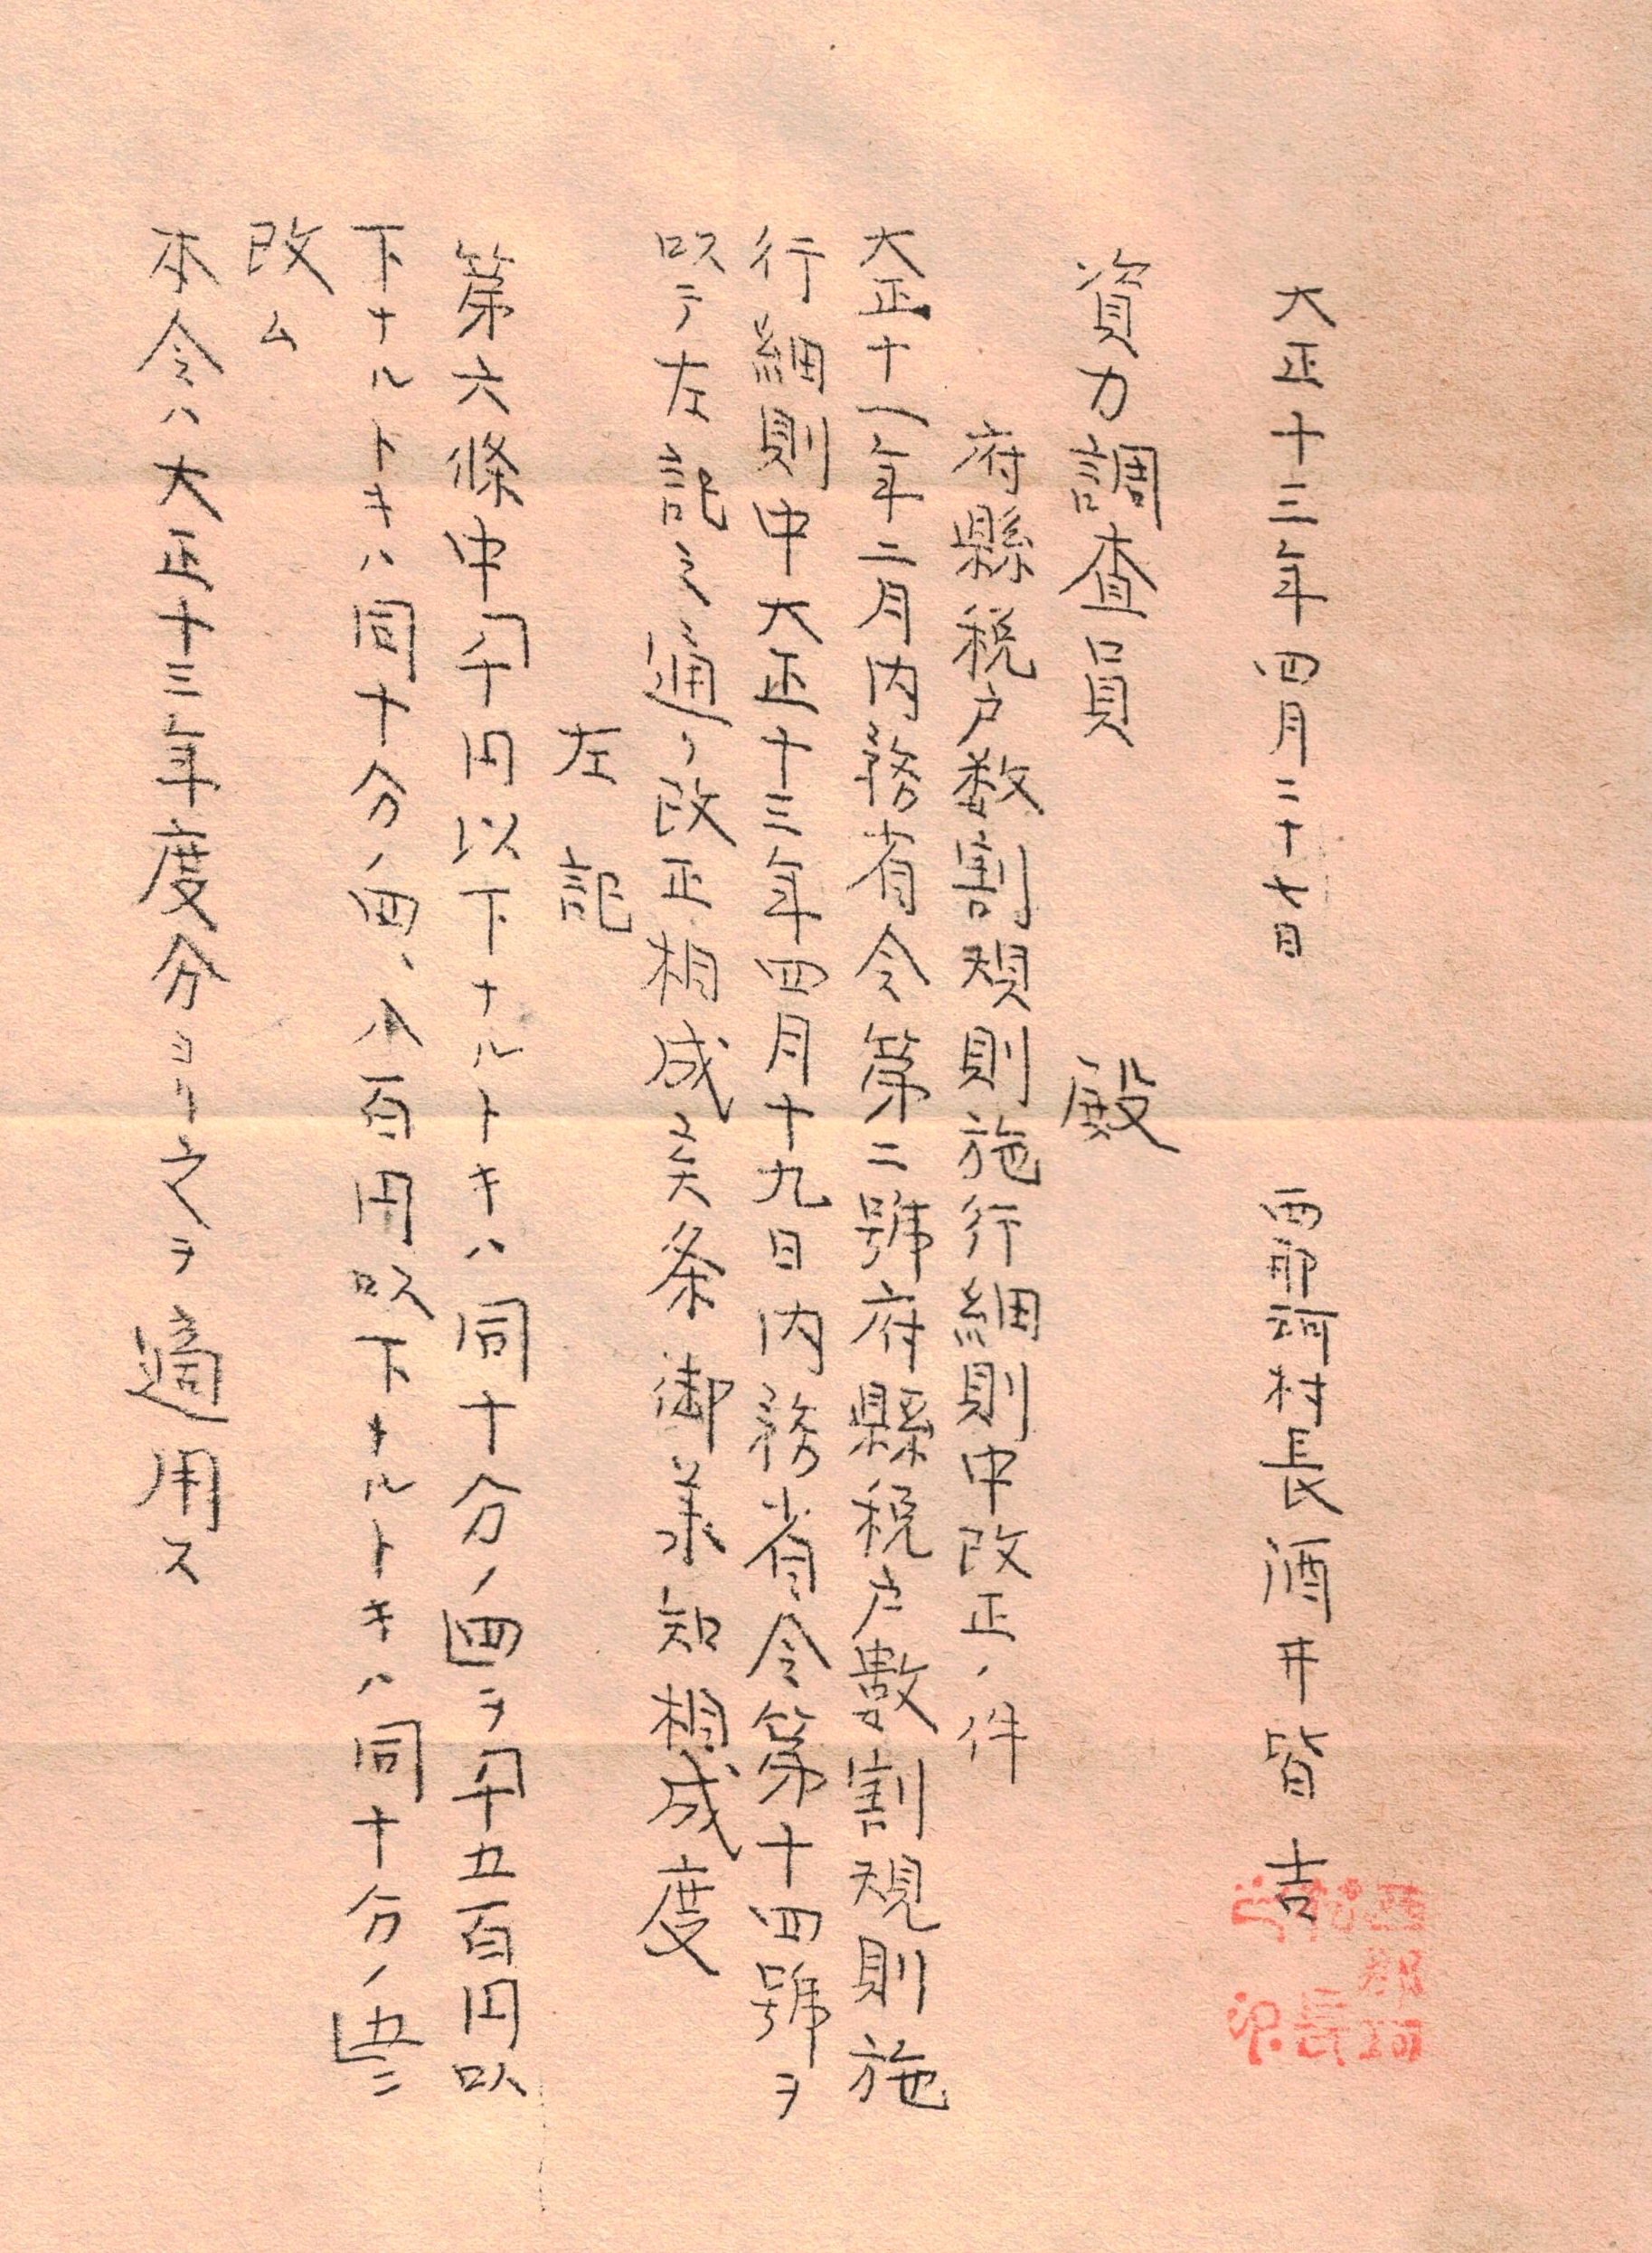 大正十三年四月二十七日
西那珂村長酒井皆吉
西那珂
村長
資力調査員 殿
府縣税戸数割規則施行細則中改正ノ件
大正十一年二月内務省令第二號府縣税戸數割規則施
行細則中大正十三年四月十九日内務省令第十四號ヲ
以テ左記之通リ改正相成矣条御承知相成度
左記
第六條中「千円以下ナルトキハ同十分ノ四」ヲ「千五百円以
下ナルトキハ同十分ノ四、八百円以下ナルトキハ同十分ノ五」ニ
改ム
本令ハ大正十三年度分ヨリ之ヲ適用ス